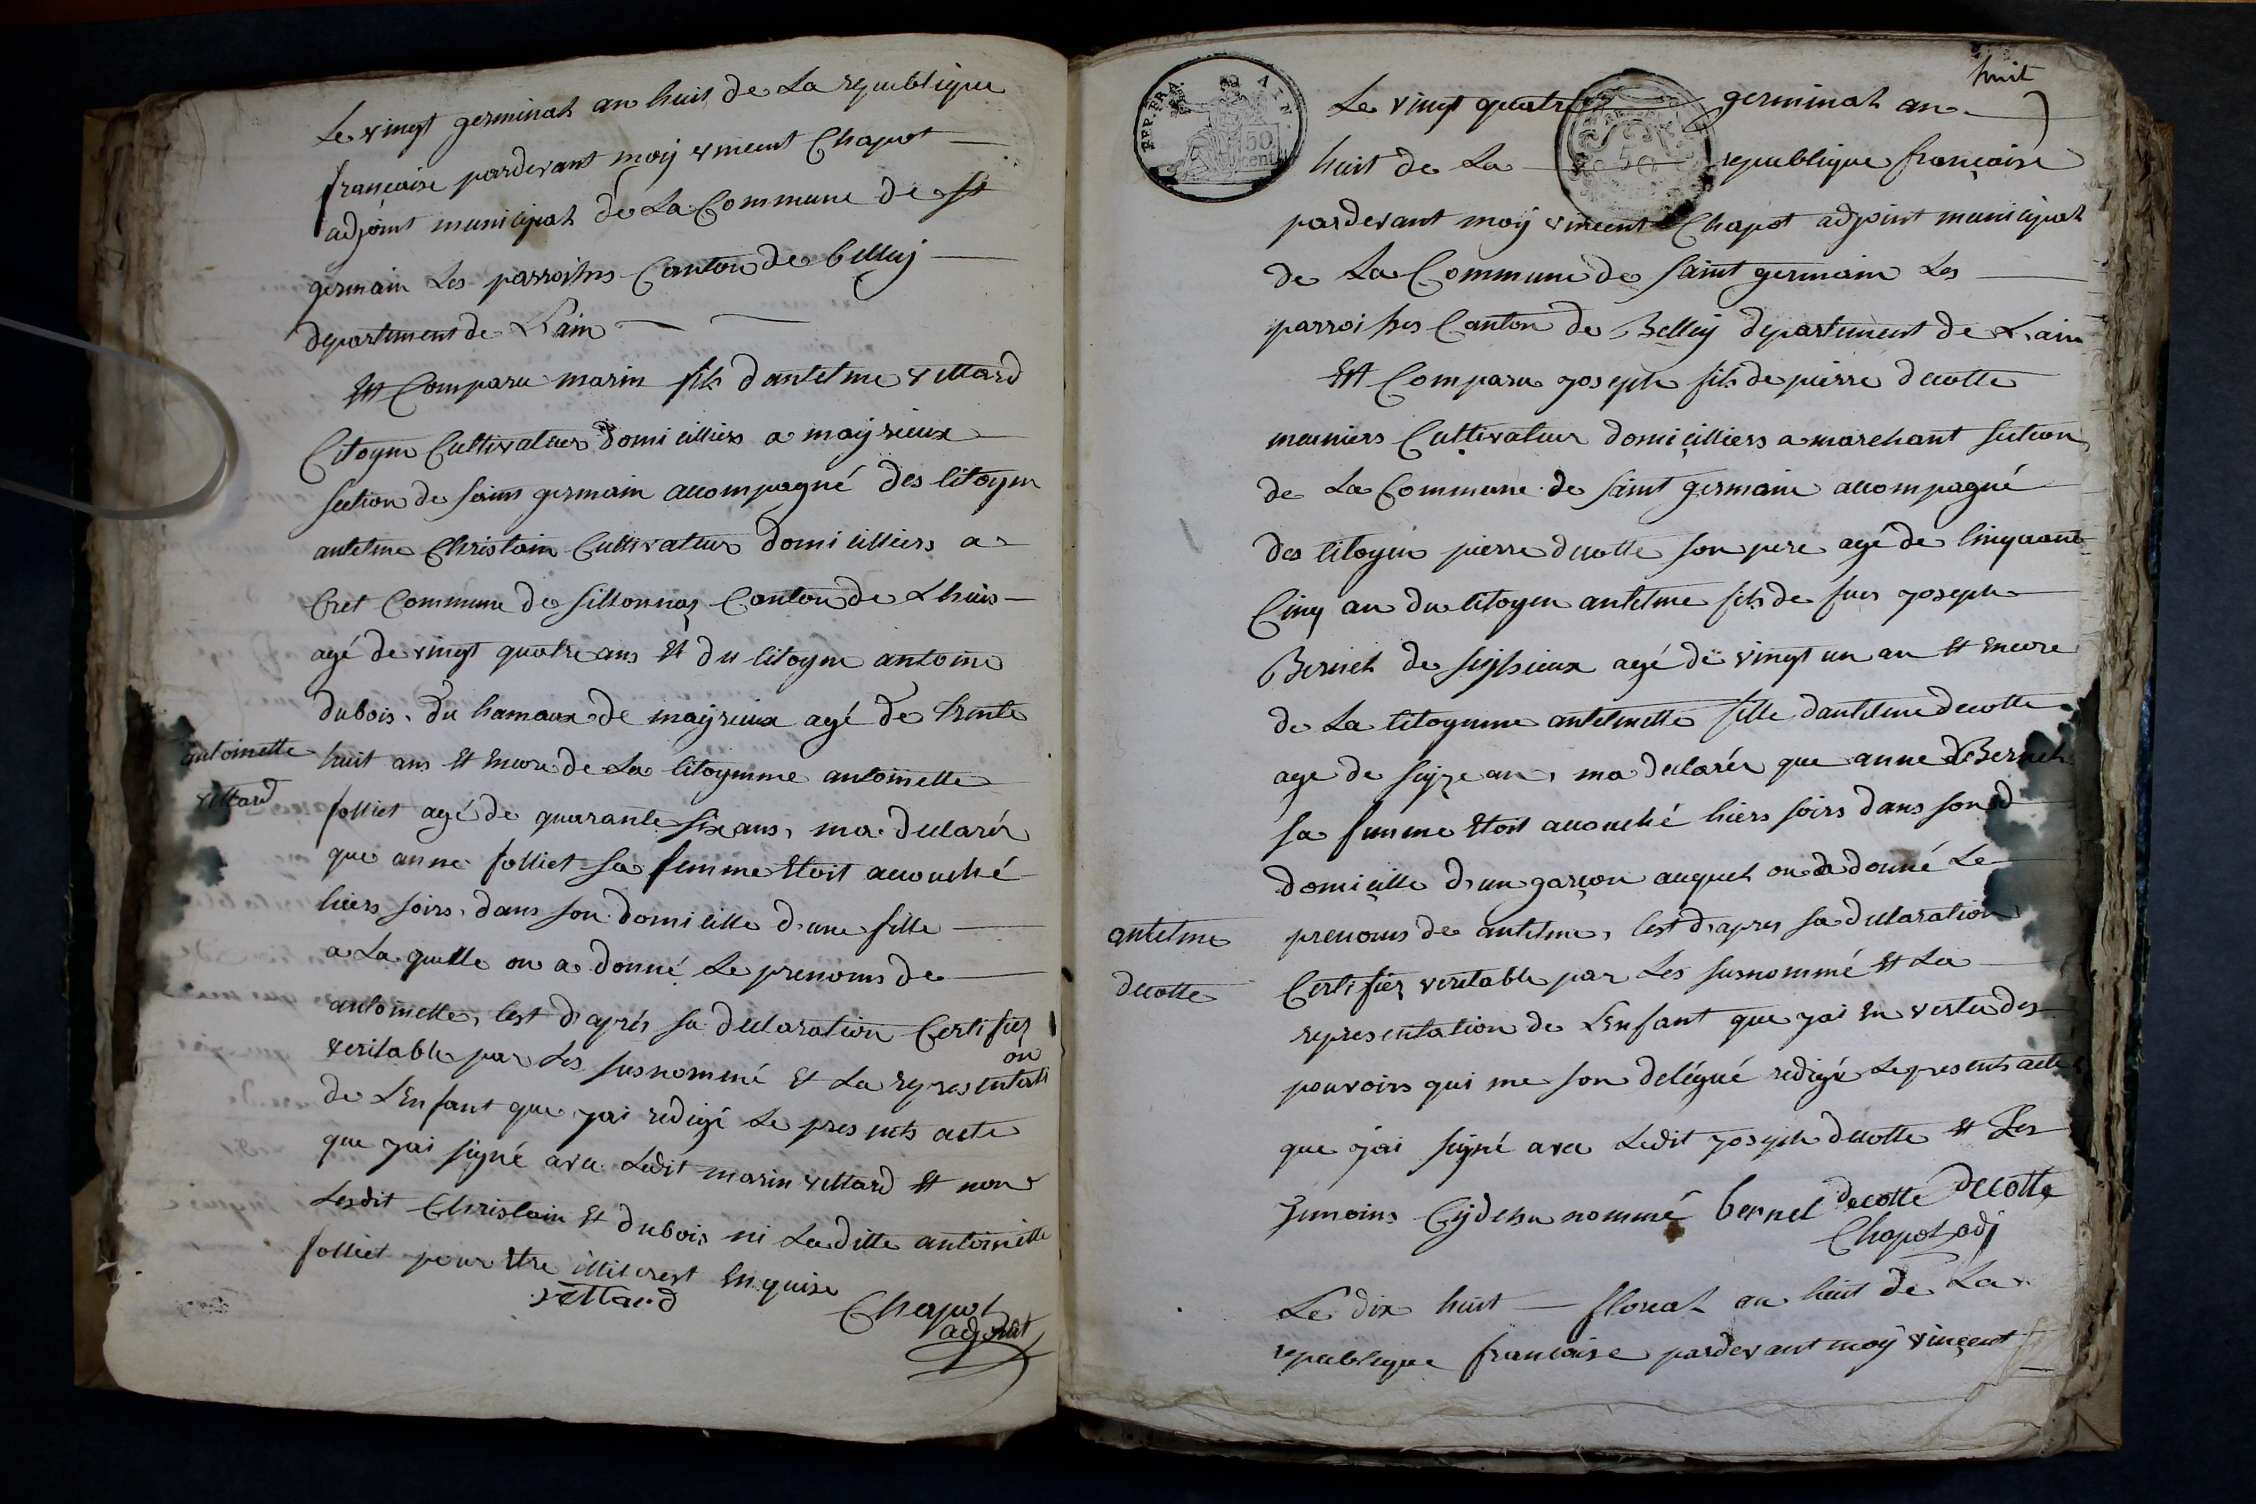 Le vingt germinal an huit de La republique
française pardevant moÿ vincent Chapot
adjoint municipal de La Commune de St
germain Les parroisses Canton de belleÿ
departement de L'ain
Est Comparu marin fils d'antelme vettard
Citoyen Cultivateur domicilliers a maÿrieux
section de saint germain accompagné des citoyen
antelme Christain Cultivateur domicilliers a
Cret Commune de sillonnaz Canton de Lhuis
agé de vingt quatre ans Et du citoyen antoine
dubois du hamaux de maÿrieux agé de trente
antoinette
vettard
huit ans Et Encore de La citoyenne antoinette
folliet agé de quarante six ans, ma declarér
que anne folliet sa femme Etoit accouché
hiers soirs, dans son domicille d'une fille
a La quelle on a donné Le prenoms de
antoinette, cest d'après sa declaration Certifiez
veritable par Les susnommé Et La representati
on
de L'Enfant que j'ai redigé Le presents acte
que j'ai signé avec Ledit marin vettard Et non
Lesdit Christain Et dubois ni Laditte antoinette
folliet pour Etre illiterest Enquise
vettard
Chapot
adjoint
huit
REP. FRA. AIN.
50 cent
50
Le vingt quatre germinal an
huit de La republique française
pardevant moÿ vincent Chapot adjoint municipal
de La Commune de saint germain Les
parroisses Canton de Belleÿ departement de L'ain
Est Comparu joseph fils de pierre decotte
meuniers Cultivateur domicilliers a marchant section
de La Commune de saint germain accompagné
des citoyen pierre decotte son pere agé de cinquante
Cinq an du citoyen antelme fils de feu joseph
Bernel de seÿssieux agé de vingt un an Et Encore
de La citoyenne antelmette fille dantelme decotte
age de seize an, ma declarér que anne Bernel
sa femme Etoit accouché hiers soirs dans son
domicille d'un garçon auquel on a donné Le
antelme
decotte
prenoms de antelme, cest d'apres sa declaration
Certifiez veritable par Les susnommé Et La
representation de L'Enfant que j'ai En vertu des
pouvoirs qui me son delégué redigé Le presents acte
que j'ai signé avec Ledit joseph decotte Et Les
temoins Cÿdessu nommé bernel decotte decotte
Chapot adj
Le dix huit floreal an huit de La
republique francaise pardevant moÿ vincent